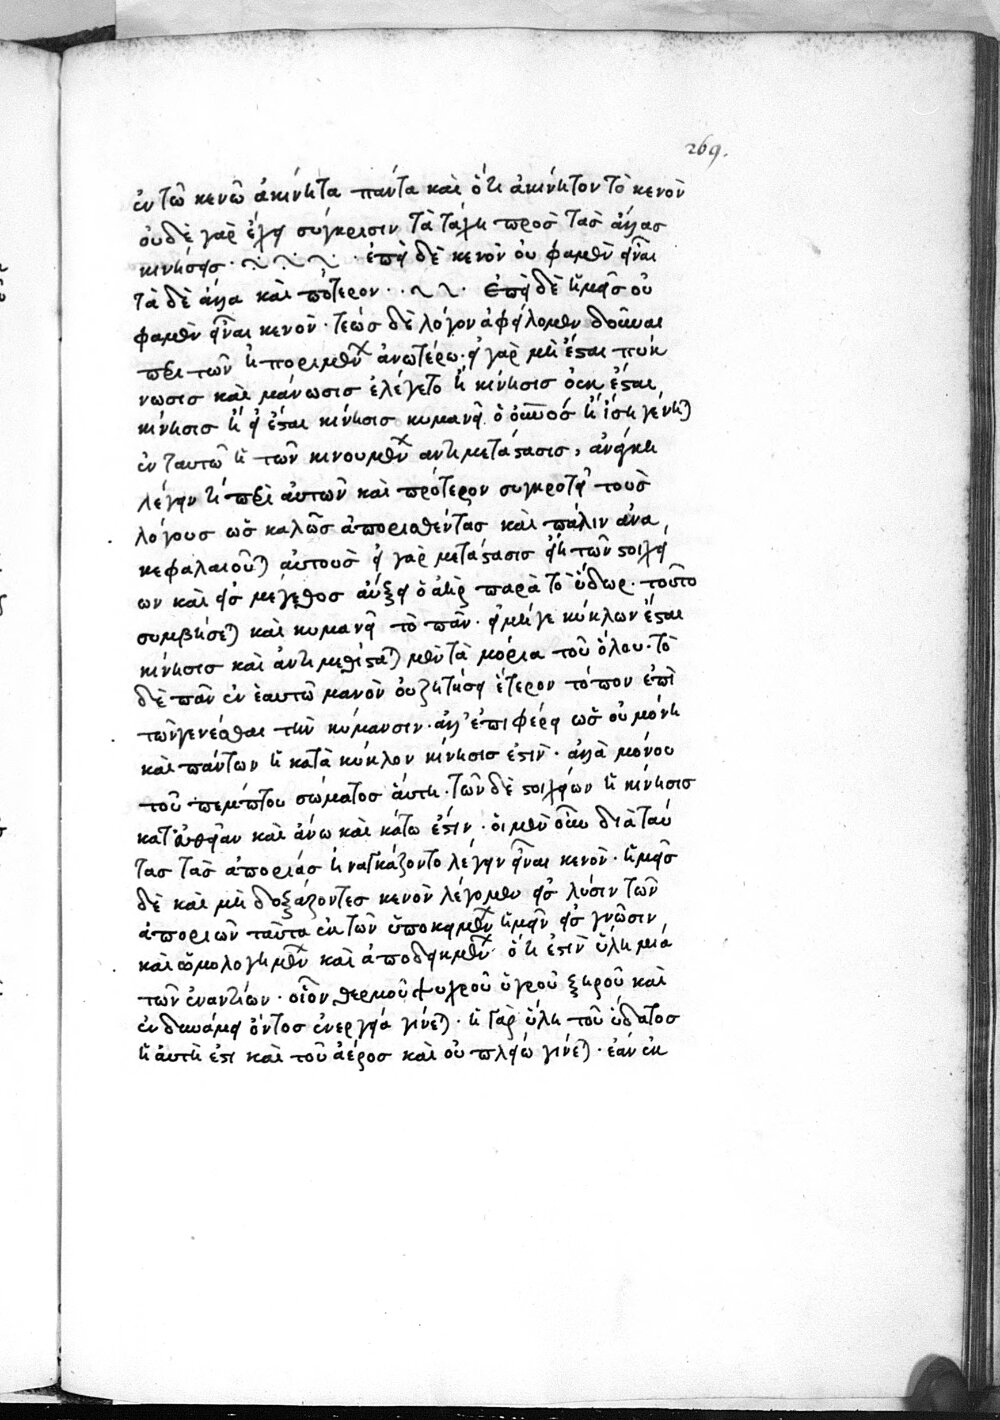 269.
ἐν τῶ κενῶ ἀκίνητα πάντα καὶ ὅτι ἀκίνητον τὸ κενὸν
οὐδὲ γὰρ ἔχει σύγκρισιν τὰ τάχη πρὸς τὰς ἄλλας
κινήσεις · ἐπεὶ δὲ κενὸν οὐ φαμὲν εἶναι
τὰ δὲ ἄλλα καὶ πότερον · ἐπεὶ δὲ ἡμεῖς οὐ
φαμὲν εἶναι κενὸν · τεώς δὲ λόγον ὀφείλομεν δοῦναι
περὶ τῶν ἠπορημένων ἀνωτέρω · εἰ γὰρ μὴ ἔσται πύκ
νωσις καὶ μάνωσις ἐλέγετο ἢ κίνησις οὐκ ἔσται,
κίνησις ἢ εἰ ἔσται κίνησις κυμανεῖ ὁ οὐρανός ἢ ἴση γένηται
ἐν ταυτῶ ἡ τῶν κινουμένων ἀντιμετάστασις, ἀνάγκη
λέγειν τί περὶ αὐτῶν καὶ πρότερον συγκροτεῖ τοὺς
λόγους ὡς καλῶς ἀπορηθέντας καὶ πάλιν ἀνα,
κεφαλαιοῦται αὐτοὺς εἰ γὰρ μετάστασις ἐκ τῶν στοιχεί
ων καὶ εἰς μέγεθος αὔξει ὁ ἀὴρ παρὰ τὸ ὕδωρ · τοῦτο
συμβήσεται καὶ κυμανεῖ τὸ πᾶν · εἰ μήγε κύκλων ἔσται
κίνησις καὶ ἀντιμεθίσταται μὲν τὰ μόρια τοῦ ὅλου · τὸ
δὲ πᾶν ἐν ἑαυτῶ μανὸν οὐ ζητήσει ἕτερον τόπον ἐπὶ
τῶ γενέσθαι τὴν κύμανσιν · ἀλλ' ἐπιφέρει ὡς οὐ μόνη
καὶ πάντων ἡ κατὰ κύκλον κίνησις ἐστὶν · ἀλλὰ μόνου
τοῦ πέμπτου σώματος αὕτη · τῶν δὲ στοιχείων ἡ κίνησις
κατ' εὐθεῖαν καὶ ἄνω καὶ κάτω ἐστιν · οἱ μὲν οὖν διὰ ταύ
τας τὰς ἀπορίας ἠναγκάζοντο λέγειν εἶναι κενὸν · ἡμεῖς
δὲ καὶ μὴ δοξάζοντες κενὸν λέγομεν εἰς λύσιν τῶν
ἀποριῶν ταῦτα ἐκ τῶν ὑποκειμένων ἡμεῖν εἰς γνῶσιν,
καὶ ὡμολογημένων καὶ ἀποδειγμένων ὅτι ἐστὶν ὕλη μιὰ
τῶν ἐναντίων · οἷον θερμοῦ ψυχροῦ ὑγροῦ ξηροῦ καὶ
ἐν δυνάμει ὄντος ἐνεργεία γίνεται · ἡ γὰρ ὕλη τοῦ ὕδατος
ἡ αὐτὴ ἐστι καὶ τοῦ ἀέρος καὶ οὐ πλείω γίνεται · ἐάν ἐκ